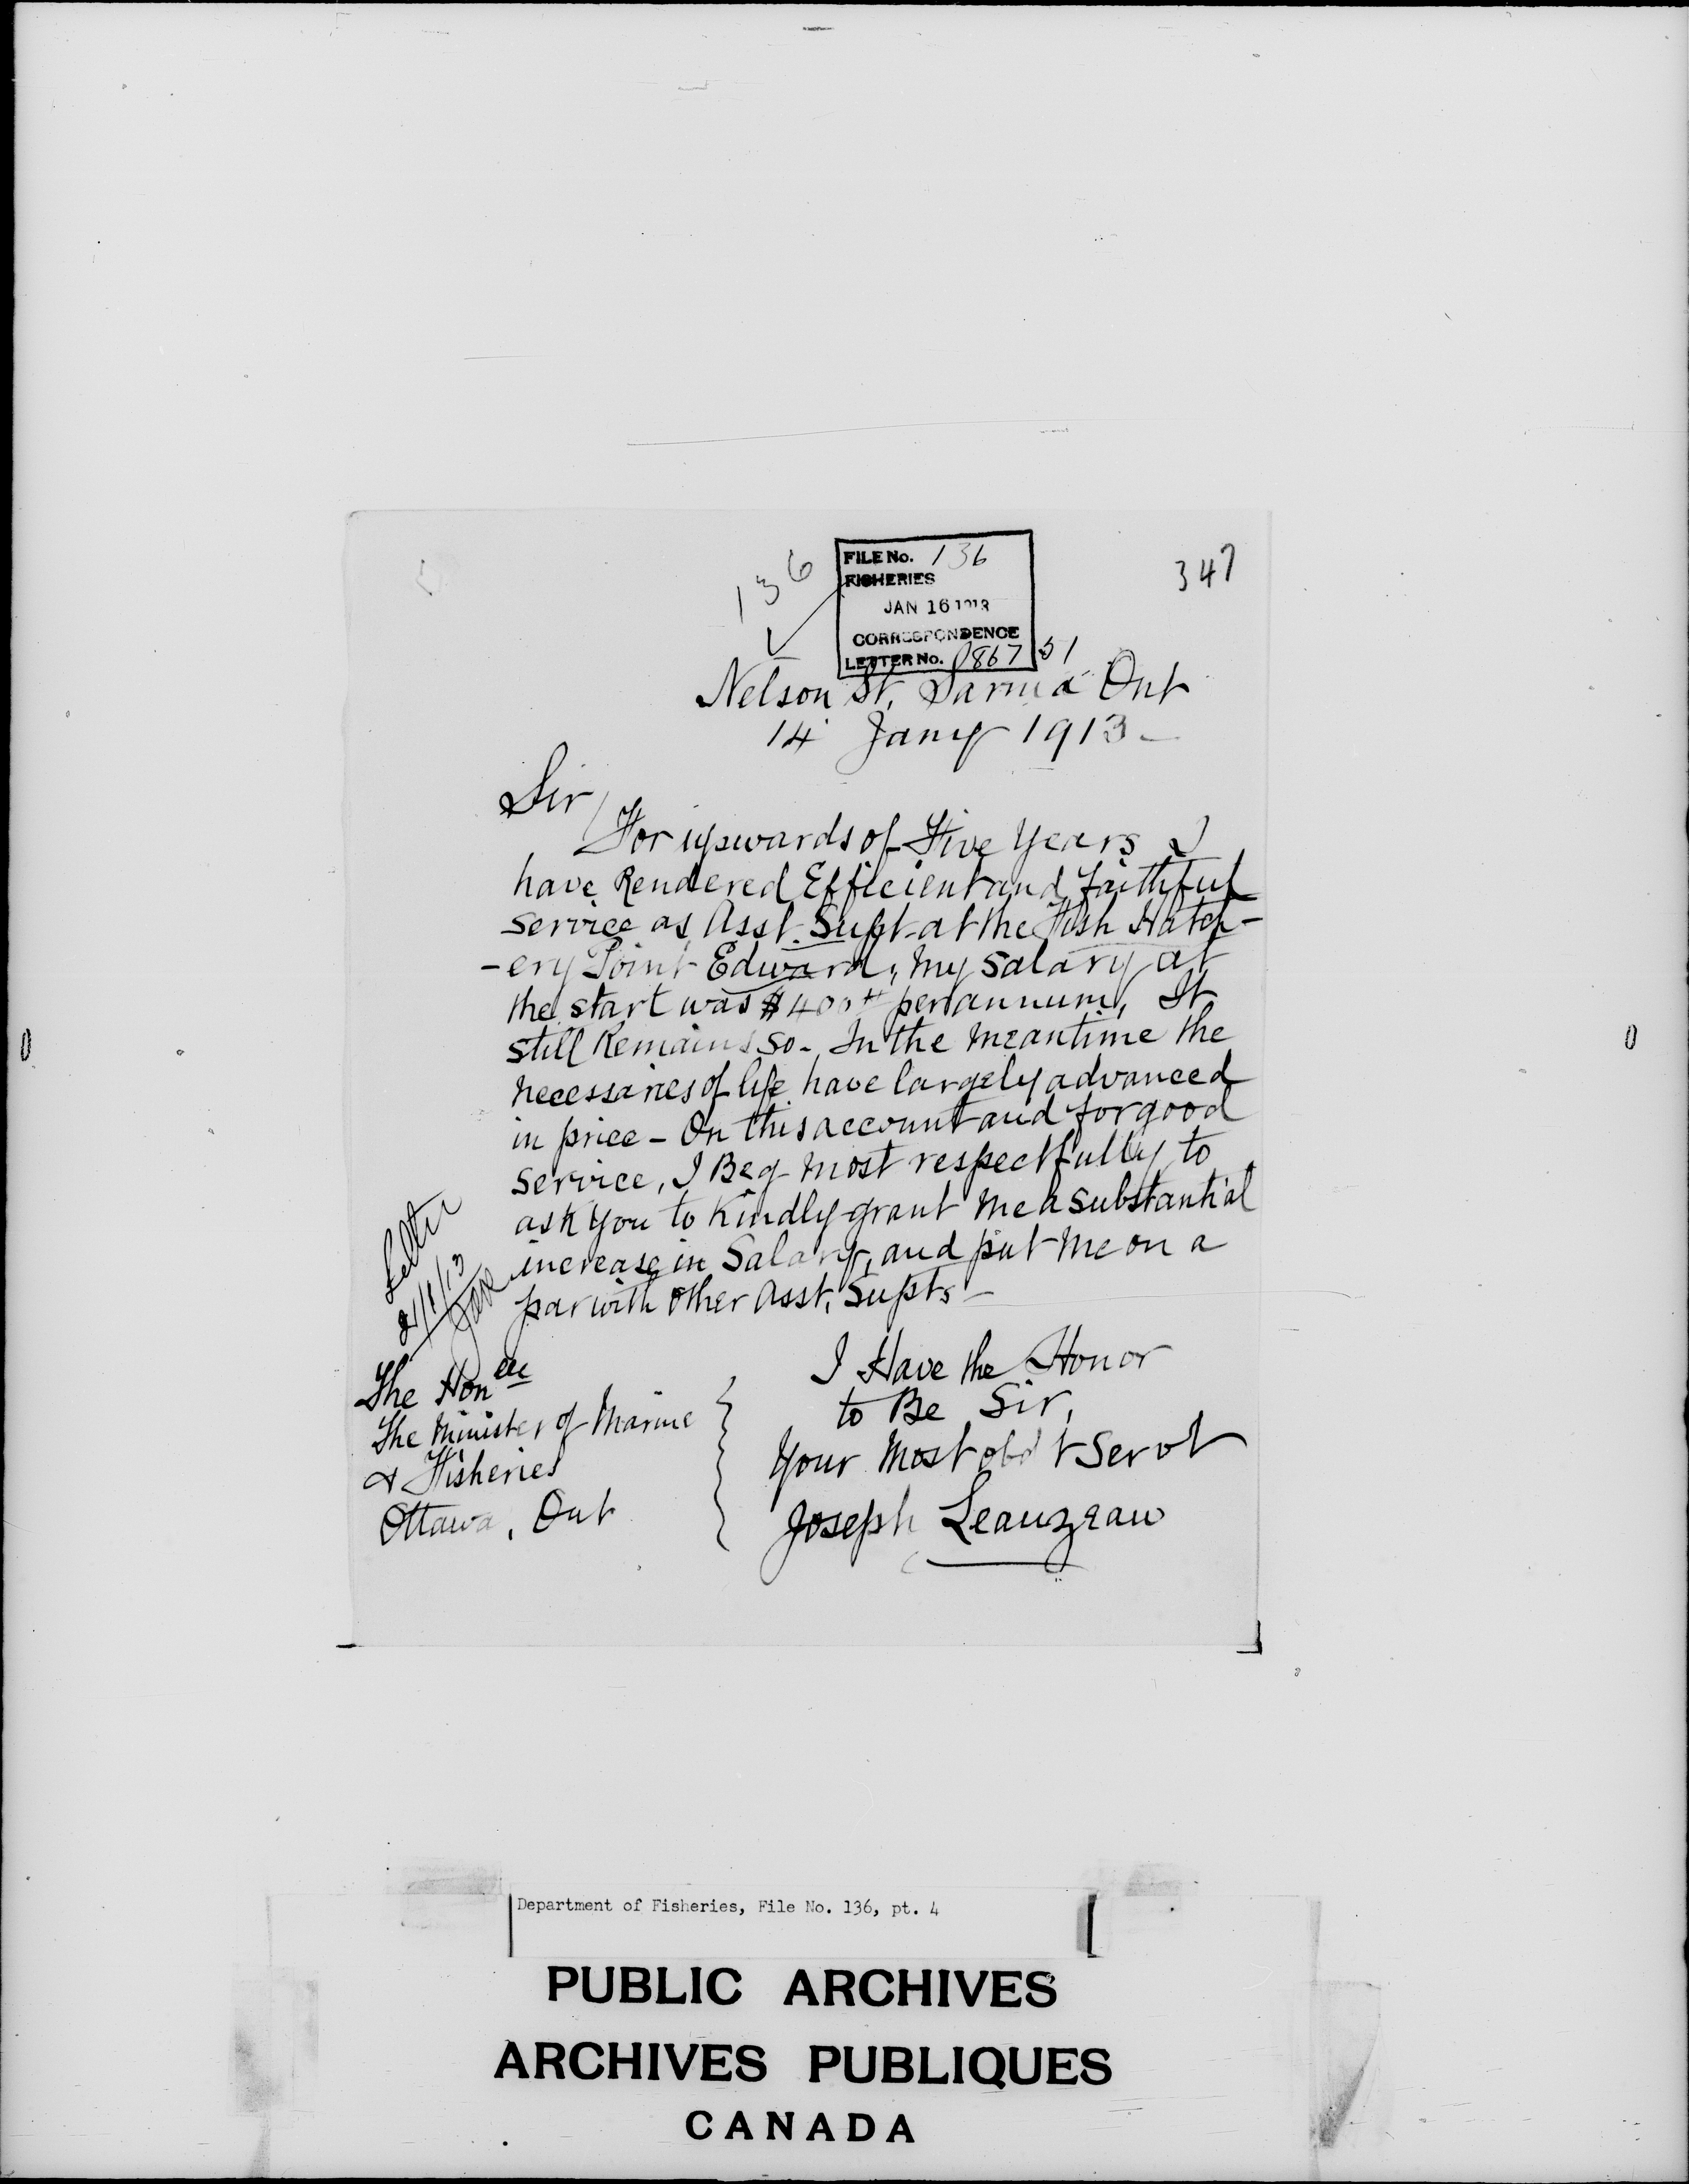 136
FILE No. 136
FISHERIES
JAN 16 1913
CORRESPONDENCE
LETTER No. 086751
347
Nelson St, Sarnia Ont
14 Jany 1913-
Sir/
For upwards of Five Years I
have Rendered Efficient and faithful
service as Asst. Supt at the Fish Hatch-
-ery Point Edward, My Salary at
the start was $400 per annum, It
still Remains so - In the Meantime the
Necessaries of life have largely advanced
in price - On this account and for good
service, I Beg Most respectfully to
ask you to Kindly grant Me a substantial
increase in Salary, and put Me on a
par with Other Asst, Supts -
Letter
21/1/13
I Have the Honor
to Be Sir,
Your Most obd't Servt
Joseph Leauzeau
The Honble
The Minister of Marine
& Fisheries
Ottawa, Ont
Department of Fisheries, File No. 136, pt. 4
PUBLIC ARCHIVES
ARCHIVES PUBLIQUES
CANADA